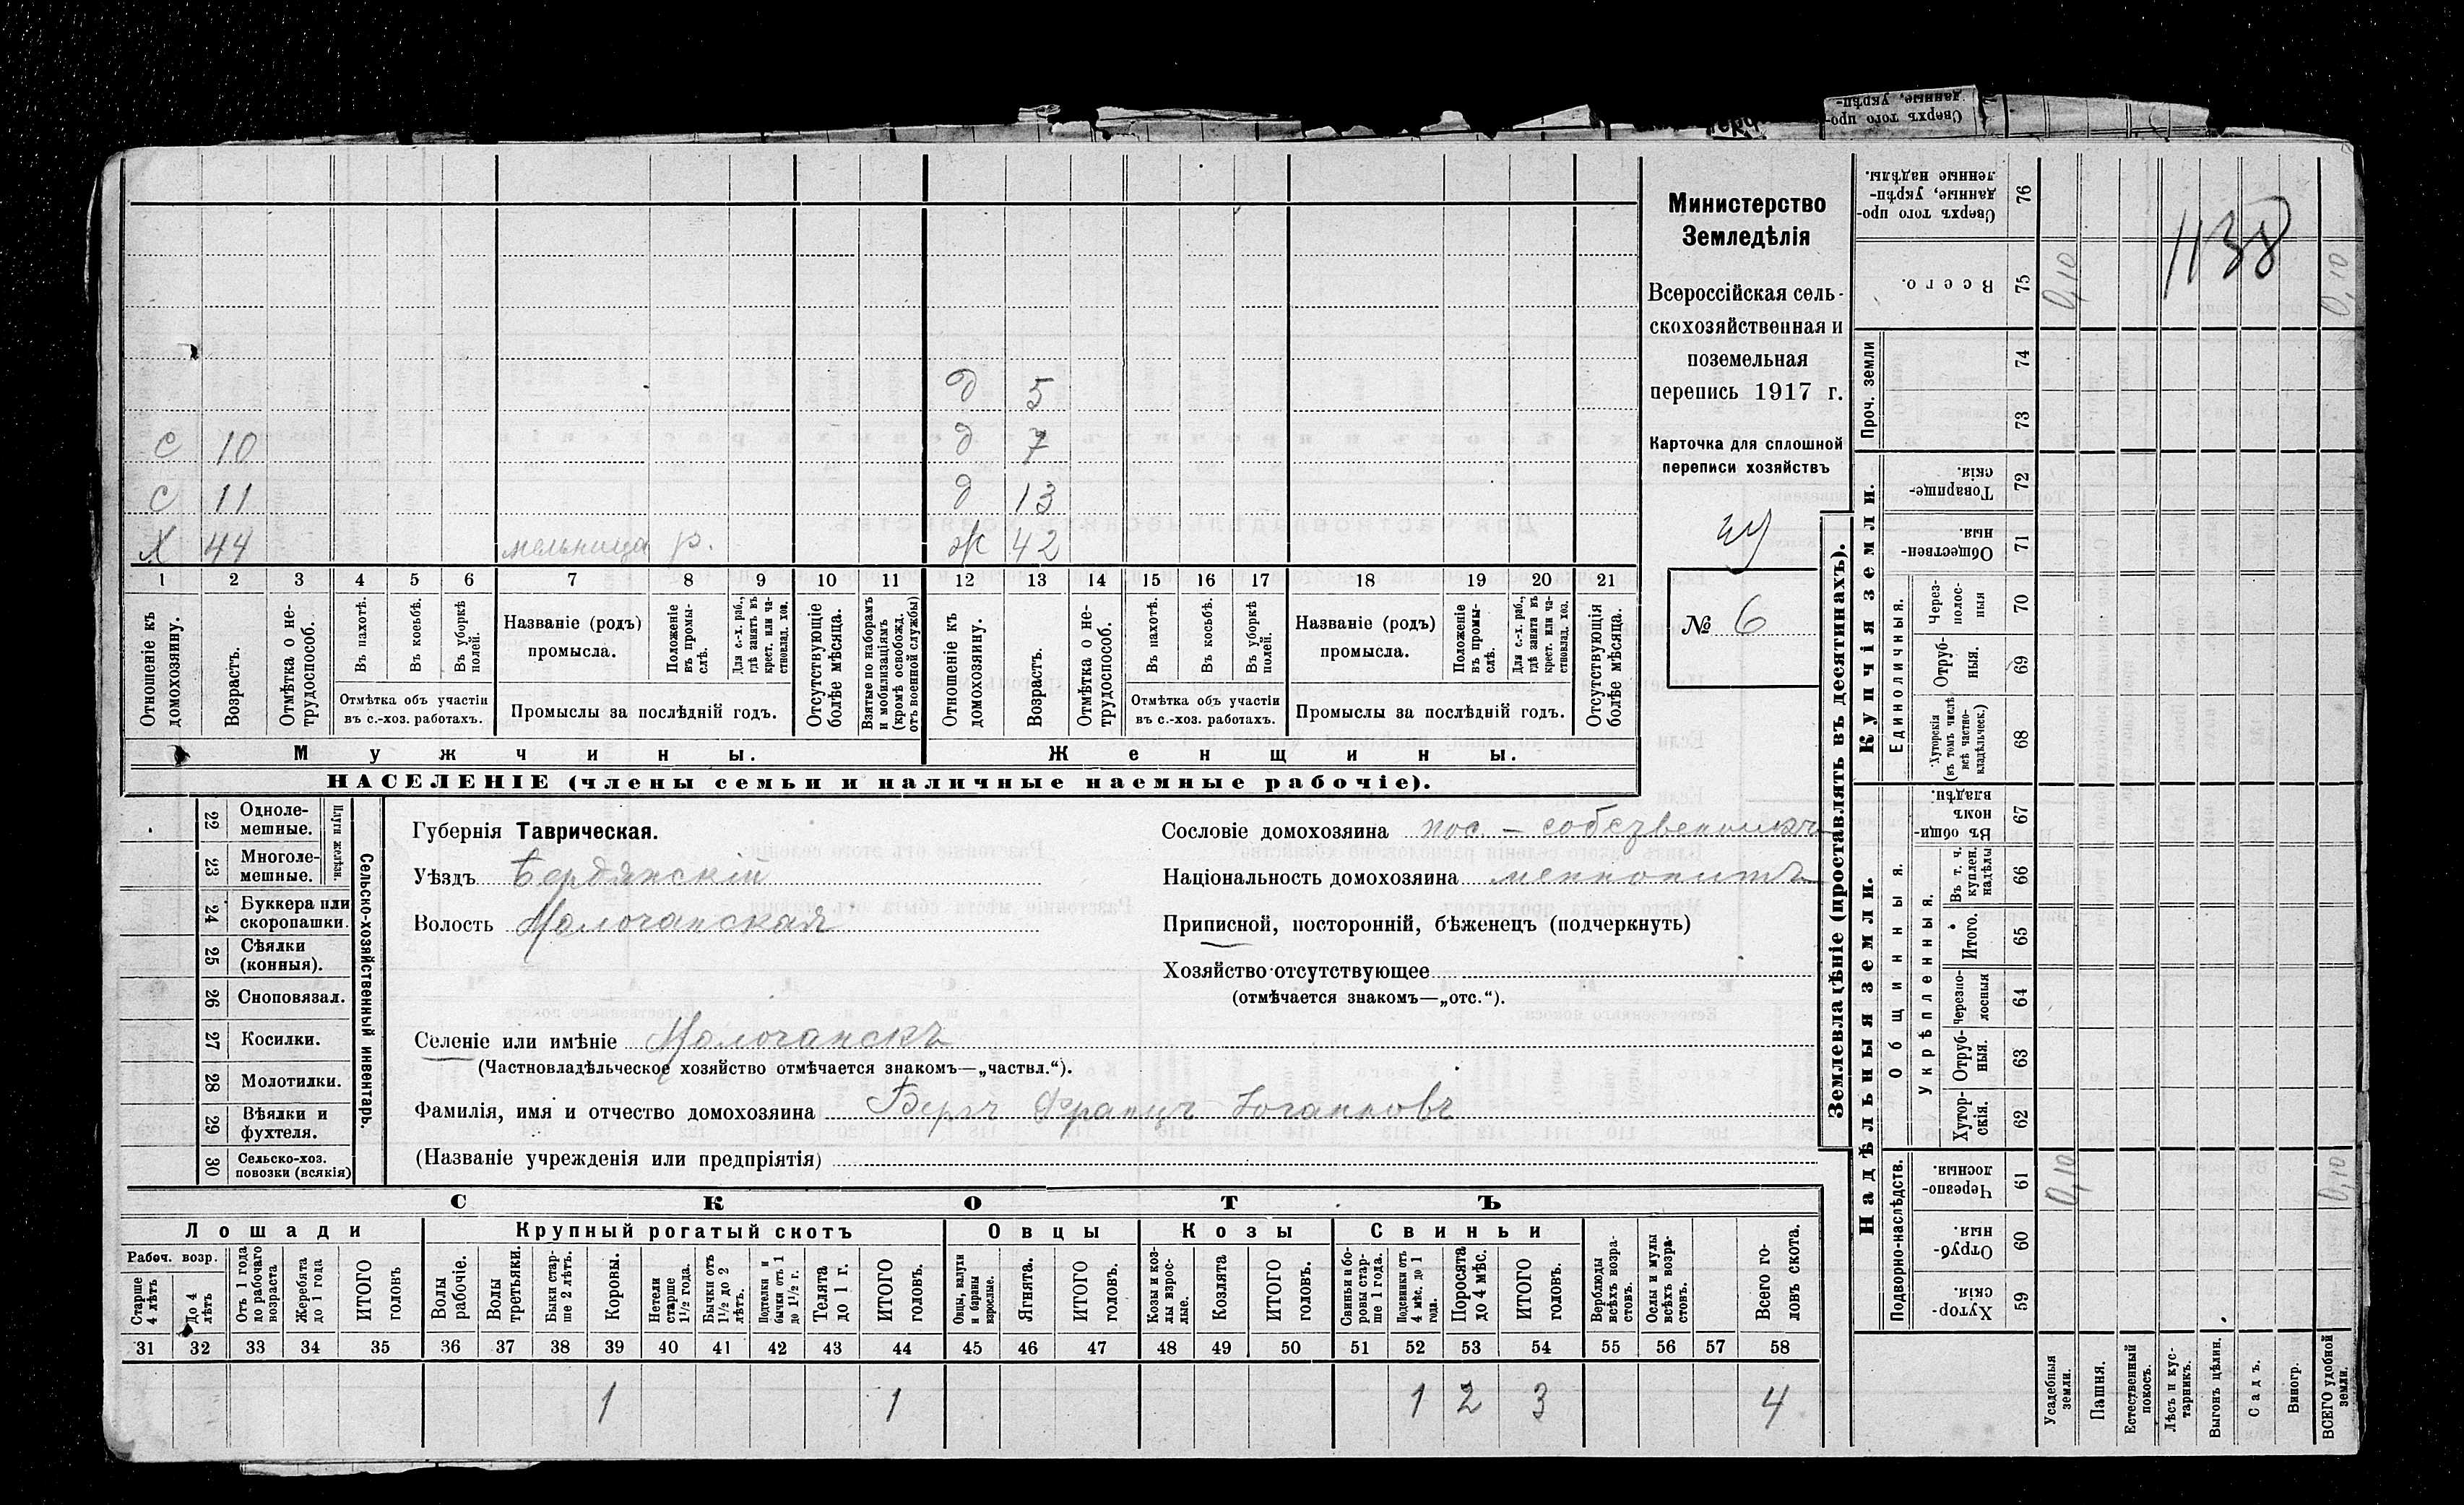 Сверхъ того про-
данные, укрѣп-
д 5
С 10 д 7
С 11 д 13
Х 44 мельница р. ж 42
1 2 3 4 5 6 7 8 9 10 11 12 13 14 15 16 17 18 19 20 21
Отношеніе къ домохозяину.
Возрастъ.
Отмѣтка о не-
трудоспособ.
Въ пахотѣ.
Въ косьбѣ.
Въ уборкѣ полей.
Отмѣтка объ участіи
въ с.-хоз. работахъ.
Названіе (родъ)
промысла.
Положеніе въ промы-
слѣ.
Для с.-х. раб.,
гдѣ занятъ въ
крест. или ча-
стновлад. хоз.
Промыслы за послѣдній годъ.
Отсутствующіе
болѣе мѣсяца.
Взятые по наборамъ
и мобилизаціямъ
(кромѣ освобожд.
отъ военной службы)
Отношеніе къ
домохозяину.
Возрастъ.
Отмѣтка о не-
трудоспособ.
Въ пахотѣ.
Въ косьбѣ.
Въ уборкѣ
полей.
Отмѣтка объ участіи
въ с.-хоз. работахъ.
Названіе (родъ)
промысла.
Положеніе
въ промы-
слѣ.
Для с.-х. раб.,
гдѣ занята въ
крест. или ча-
стновлад. хоз.
Промыслы за послѣдній годъ.
Отсутствующія
болѣе мѣсяца.
Мужчины. Женщины.
НАСЕЛЕНІЕ (члены семьи и наличные наемные рабочіе).
Министерство
Земледѣлія
Всероссійская сель-
скохозяйственная и
поземельная
перепись 1917 г.
Карточка для сплошной
переписи хозяйствъ
№ 6
22 Одноле-
мешные.
23 Многоле-
мешные.
Плуги желѣзн.
24 Буккера или
скоропашки.
25 Сѣялки
(конныя).
26 Сноповязал.
27 Косилки.
28 Молотилки.
29 Вѣялки и
фухтеля.
30 Сельско-хоз.
повозки (всякія)
Сельско-хозяйственный инвентарь.
Губернія Таврическая.
Уѣздъ Бердянскій
Волость Молочанская
Селеніе или имѣніе Молочанскъ
(Частновладѣльческое хозяйство отмѣчается знакомъ—„частвл.“).
Фамилія, имя и отчество домохозяина Бергъ Францъ Іоганновъ
(Названіе учрежденія или предпріятія)
Сословіе домохозяина пос. – собственникъ
Національность домохозяина меннонитъ
Приписной, посторонній, бѣженецъ (подчеркнуть)
Хозяйство отсутствующее
(отмѣчается знакомъ—„отс.“).
СКОТЪ
Лошади Крупный рогатый скотъ Овцы Козы Свиньи
Рабоч. возр.
Старше
4 лѣтъ
До 4
лѣтъ
Отъ 1 года
до рабочаго
возраста
Жеребята
до 1 года
ИТОГО
головъ
Волы
рабочіе.
Волы
третьяки.
Быки стар-
ше 2 лѣтъ.
Коровы.
Нетели
старше
1½ года.
Бычки отъ
1½ до 2
лѣтъ.
Подтелки и
бычки отъ 1
до 1½ г.
Телята
до 1 г.
ИТОГО
головъ.
Овцы, валухи
и бараны
взрослые.
Ягнята.
ИТОГО
головъ.
Козы и коз-
лы взрос-
лые.
Козлята
ИТОГО
головъ.
Свиньи и бо-
ровы стар-
ше 1 года.
Подсвинки отъ
4 мѣс. до 1
года.
Поросята
до 4 мѣс.
ИТОГО
головъ.
Верблюды
всѣхъ возра-
стовъ.
Ослы и мулы
всѣхъ возра-
стовъ.
Всего го-
ловъ скота.
31 32 33 34 35 36 37 38 39 40 41 42 43 44 45 46 47 48 49 50 51 52 53 54 55 56 57 58
1 1 1 2 3 4
Землевладѣніе (проставлять въ десятинахъ).
Купчія земли.
Надѣльныя земли.
Сверхъ того про-
данные, укрѣп-
ленные надѣлы.
76
Всего.
75 0,10 0,10
1138
Проч. земли
74
73
Товарище-
скія.
72
Обществен-
ныя.
71
Единоличныя.
Через-
полос-
ныя
70
Отруб-
ныя.
69
Хуторскія
(въ томъ числѣ
всѣ частно-
владѣльческ.)
68
Общинныя.
Въ общи-
номъ
владѣн.
67
Укрѣпленныя.
Въ т. ч.
куплен.
надѣлы
66
Итого.
65
Черезпо-
лосныя
64
Отруб-
ныя.
63
Хутор-
скія.
62
Подворно-наслѣдств.
Черезпо-
лосныя.
61 0,10 0,10
Отруб-
ныя.
60
Хутор-
скія.
59
Усадебныя
земли.
Пашня.
Естественный
покосъ.
Лѣсъ и кус-
тарникъ.
Выгонъ цѣлин.
Садъ.
Виногр.
ВСЕГО удобной
земли.